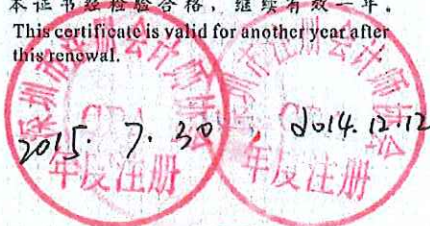 本证书经检验合格，继续有效一年。
This certificate is valid for another year after
this renewal.
深圳市注册会计师协会
CPA
2015. 7. 30
年度注册
深圳市注册会计师协会
CPA
2014.12.12
年度注册